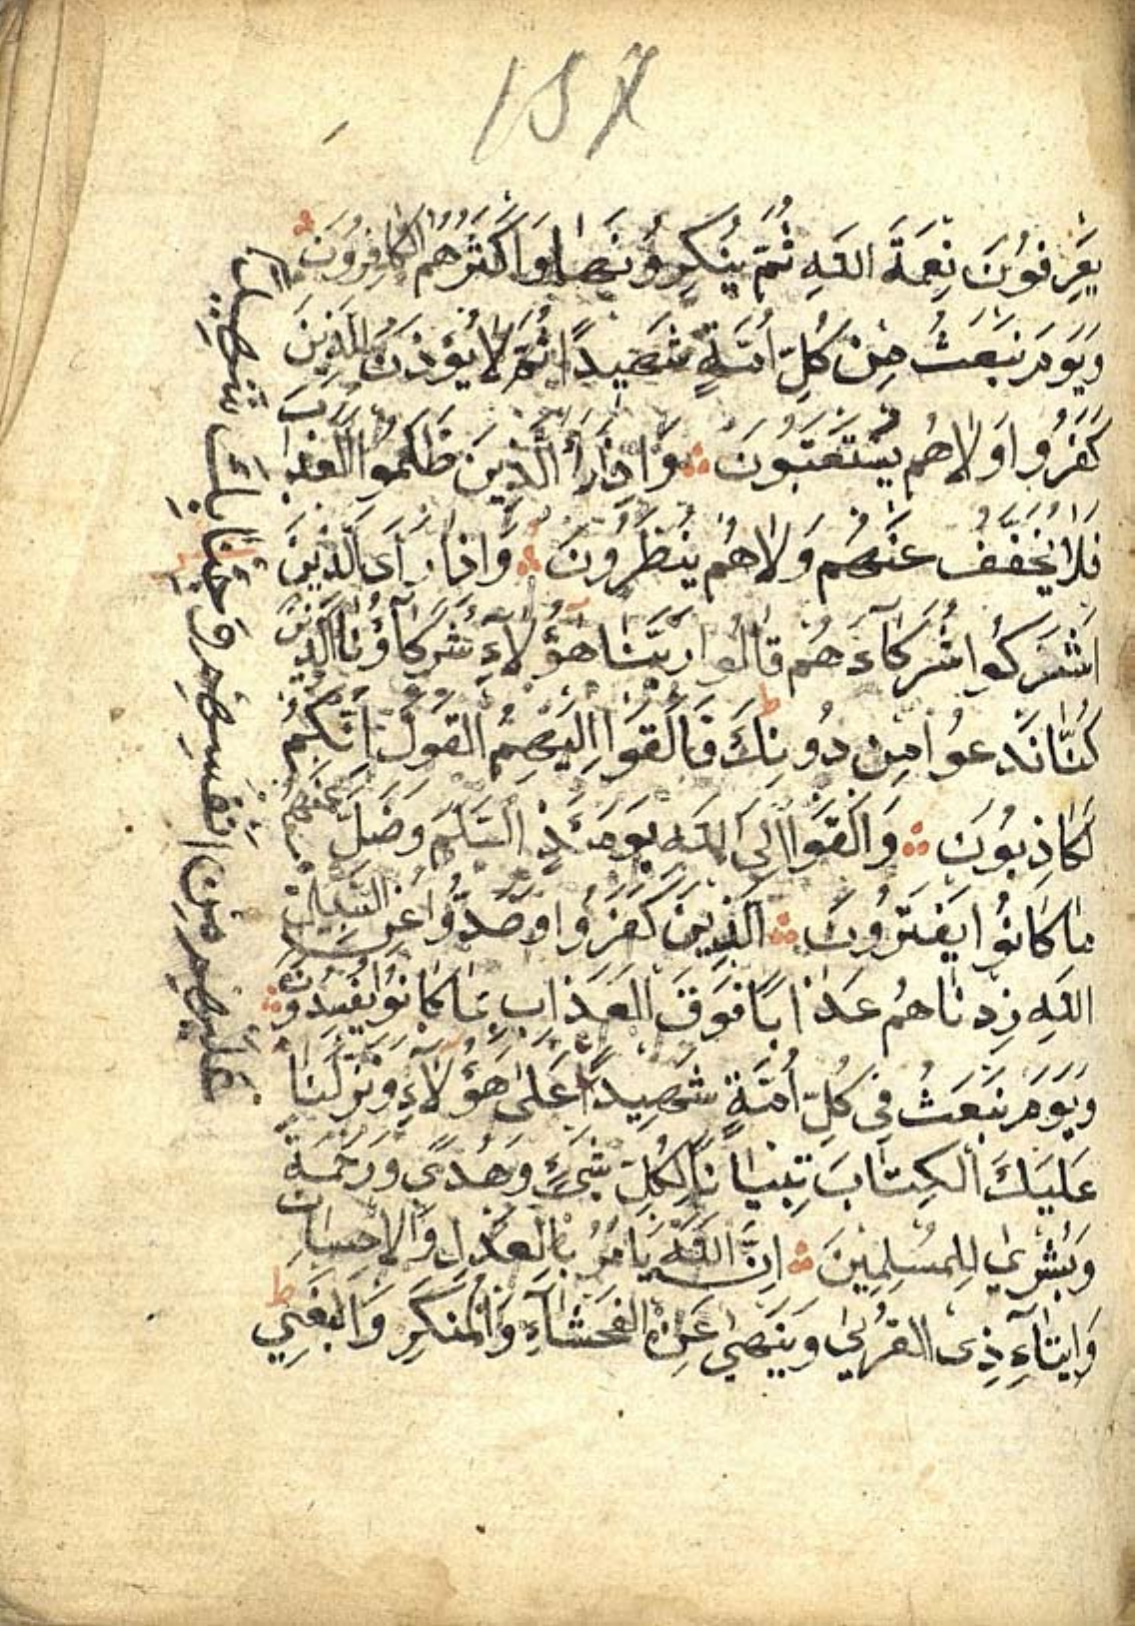 157
يَعْرِفُونَ نِعْمَةَ اللهِ ثُمَّ يُنْكِرُونَهَا وَاَكْثَرُهُمُ الْكَافِرُونَ
وَيَوْمَ نَبْعَثُ مِنْ كُلِّ اُمَّةٍ شَهِيدًا ثُمَّ لَا يُؤْذَنُ لِلَّذِينَ
كَفَرُوا وَلَاهُمْ يُسْتَعْتَبُونَ وَاِذَا رَاَ الَّذِينَ ظَلَمُوا الْعَذَابَ
فَلَا يُخَفَّفُ عَنْهُمْ وَلَاهُمْ يُنْظَرُونَ وَاِذَا رَاَى الَّذِينَ
اَشْرَكُوا شُرَكَآءَهُمْ قَالُوا رَبَّنَا هٰٓؤُلَاءِ شُرَكَاؤُنَا الَّذِينَ
كُنَّا نَدْعُوا مِنْ دُونِكَ فَاَلْقَوْا اِلَيْهِمُ الْقَوْلَ اِنَّكُمْ
لَكَاذِبُونَ وَاَلْقَوْا اِلَى اللهِ يَوْمَئِذٍ السَّلَمَ وَضَلَّ عَنْهُمْ
مَا كَانُوا يَفْتَرُونَ اَلَّذِينَ كَفَرُوا وَصَدُّوا عَنْ سَبِيلِ
اللهِ زِدْنَاهُمْ عَذَابًا فَوْقَ الْعَذَابِ بِمَا كَانُوا يُفْسِدُونَ
وَيَوْمَ نَبْعَثُ فِي كُلِّ اُمَّةٍ شَهِيدًا عَلَى هٰٓؤُلَاءِ وَنَزَّلْنَا
عَلَيْكَ الْكِتَابَ تِبْيَانًا لِكُلِّ شَيْءٍ وَهُدًى وَرَحْمَةً
وَبُشْرٰى لِلْمُسْلِمِينَ اِنَّ اللهَ يَاْمُرُ بِالْعَدْلِ وَالْاِحْسَانِ
وَاِيتَآءِ ذِى الْقُرْبٰى وَيَنْهٰى عَنِ الْفَحْشَآءِ وَالْمُنْكَرِ وَالْبَغْيِ
عَلَيْهِمْ مِنْ اَنْفُسِهِمْ وَجِئْنَا بِكَ شَهِيدًا